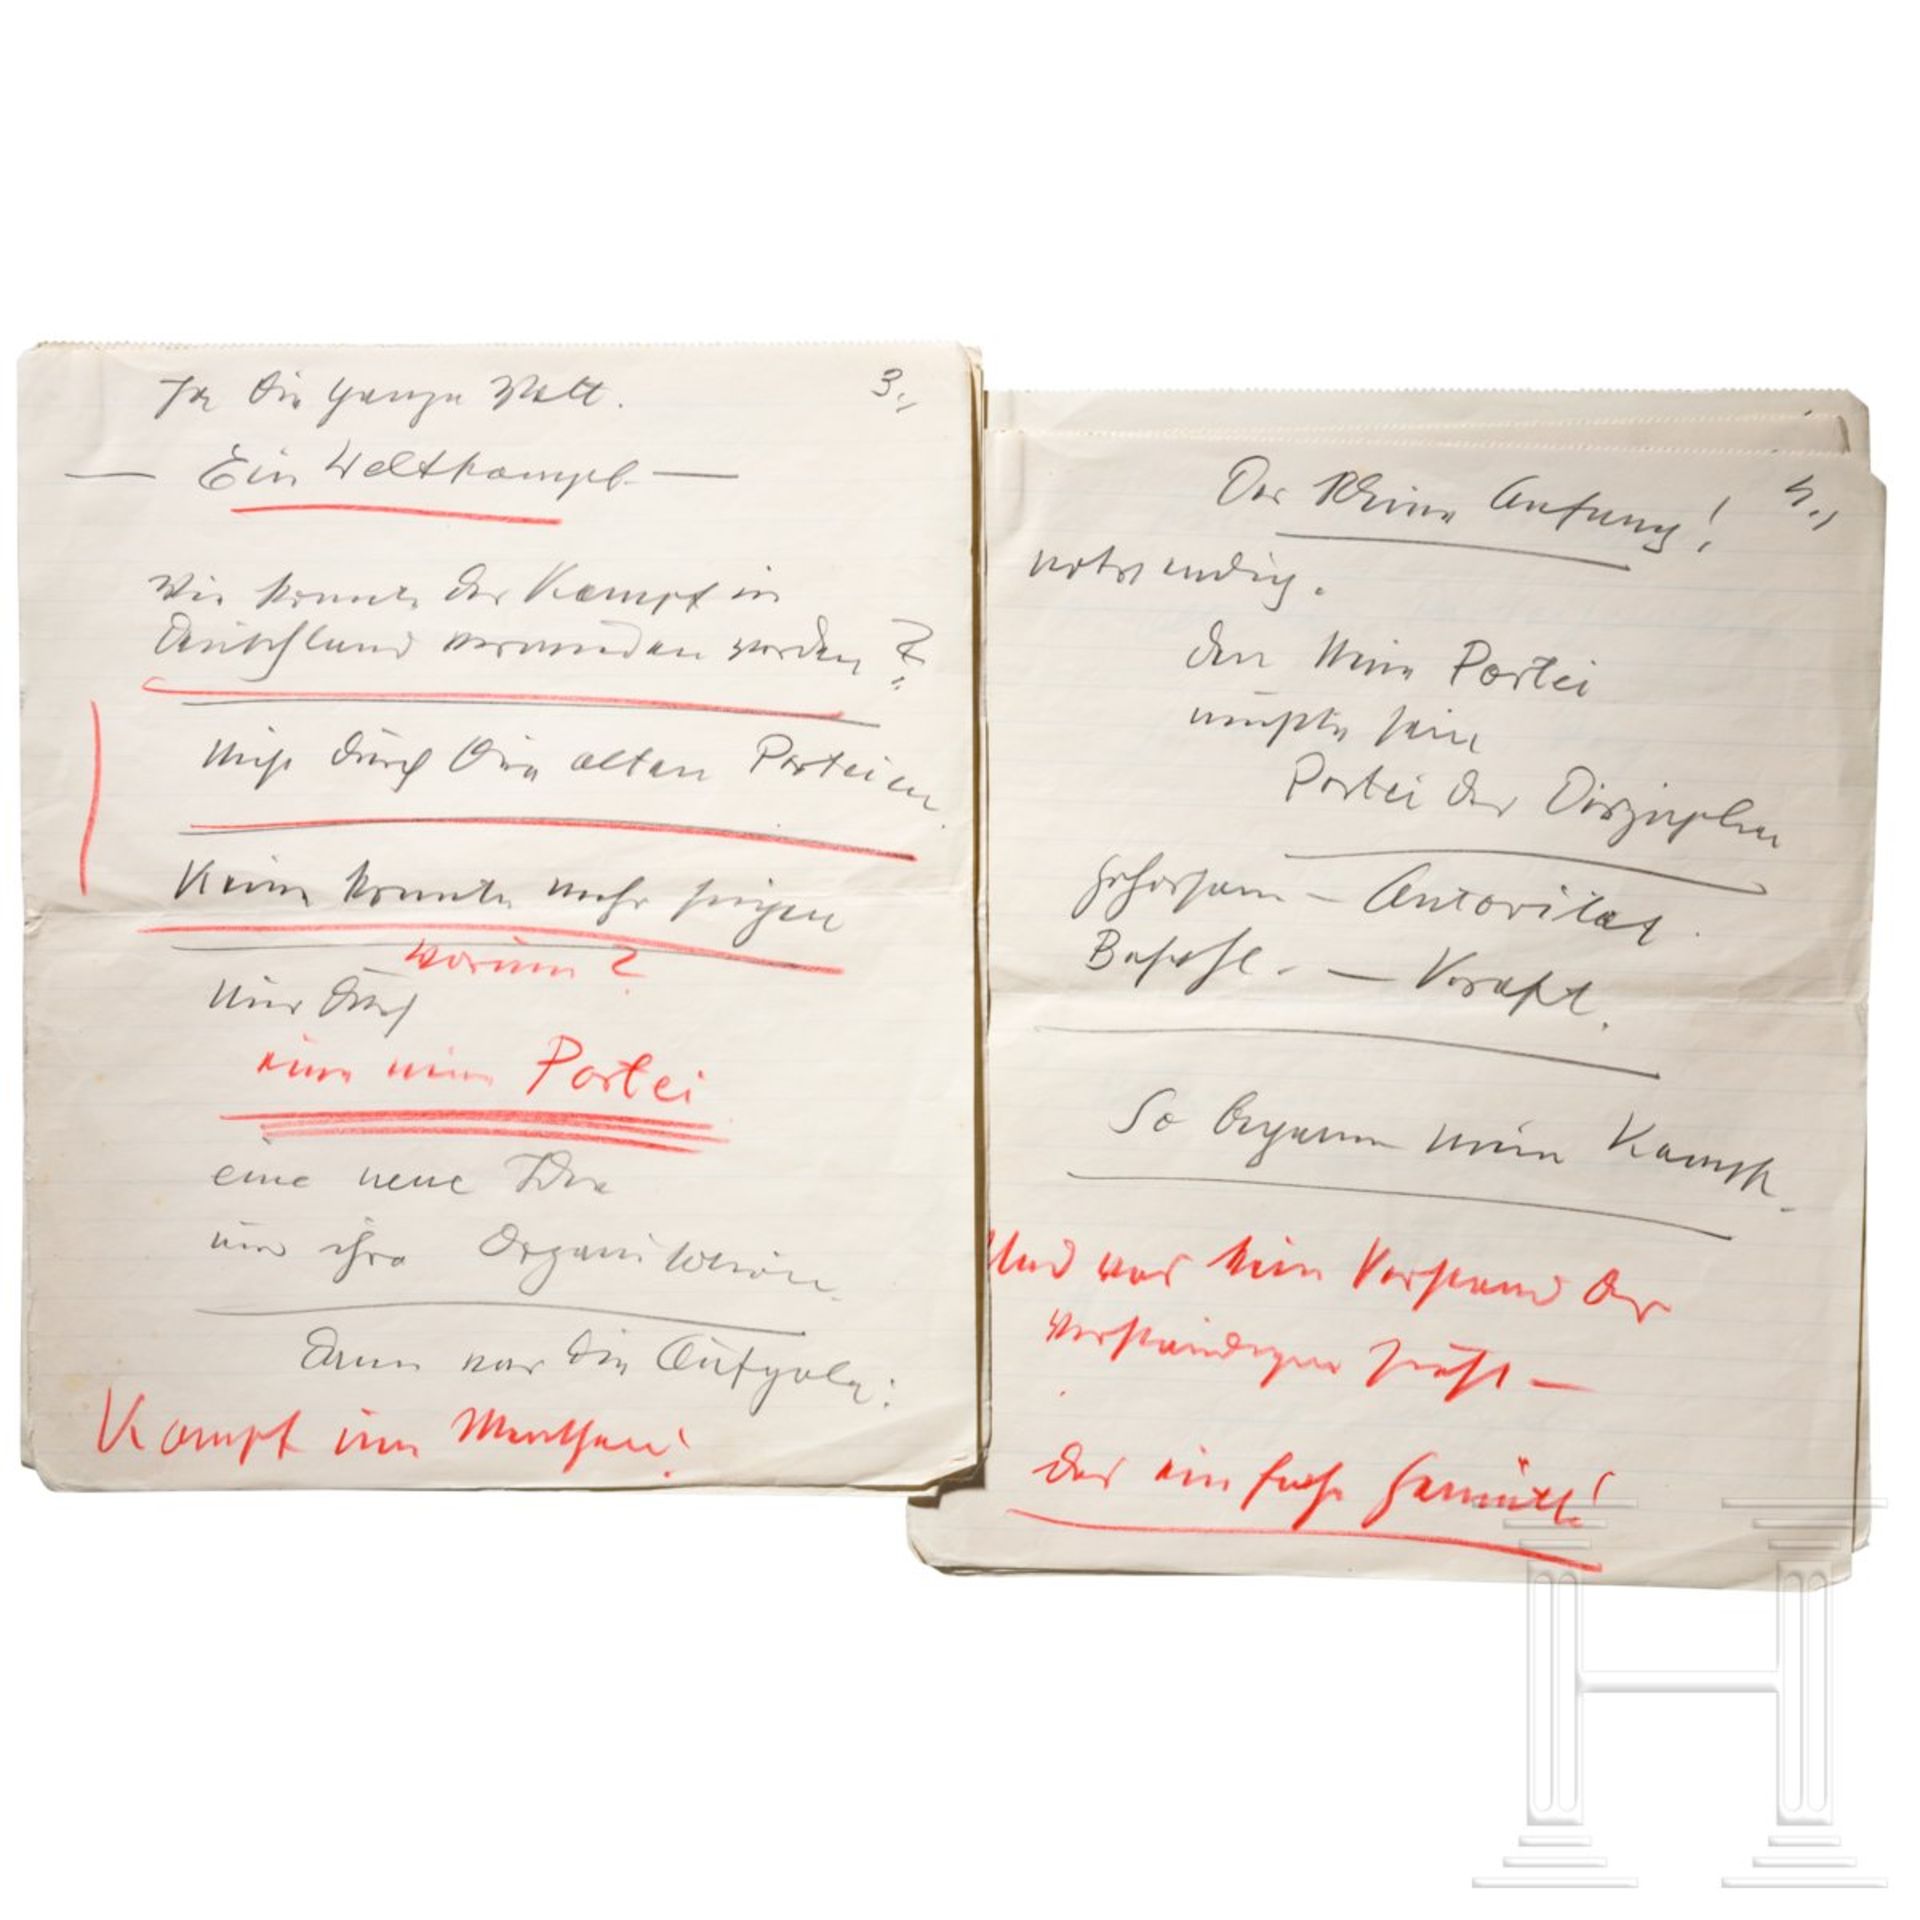 Ja die ganze Welt. 3.,
— Ein Weltkampf —
Wie konnte der Kampf in
Deutschland vermieden werden?
Nicht durch die alten Parteien.
Keine konnte mehr siegen
warum?
Nur durch
eine neue Partei
eine neue Idee
und ihre Organisation.
Dann war die Aufgabe:
Kampf um Menschen!
Der kleine Anfang! 4.,
notwendig.
den neue Partei
mußte sein
Partei der Disziplin
Gehorsam – Autorität.
Befehl. –
So begann mein Kampf.
Und was kein Verstand der
Verständigen sieht –
das einfache Gemüt!
H